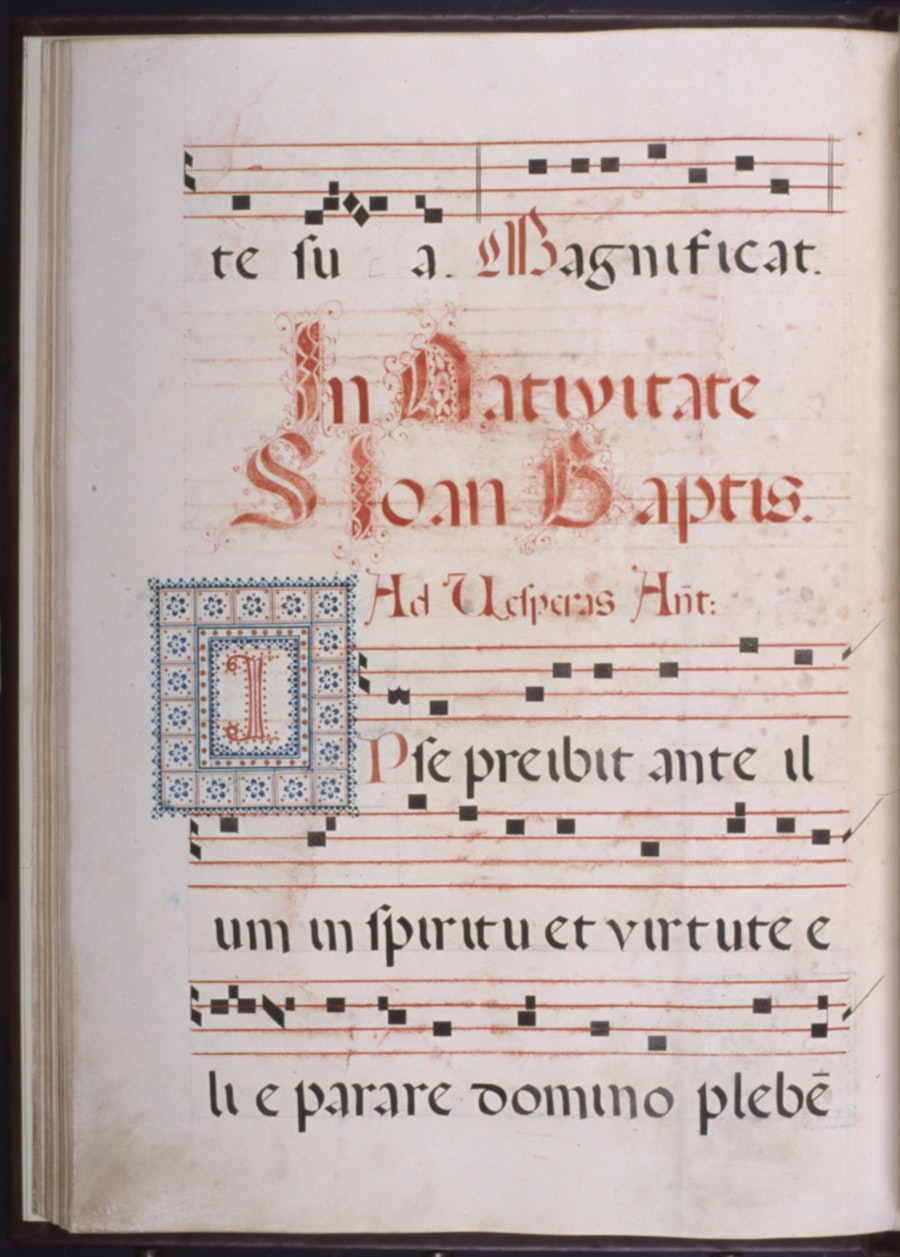 te su a. Magnificat.
In Nativitate
S Ioan Baptis.
Ad Uesperas Añt:
IPse preibit ante il
um in spiritu et virtute e
li e parare domino plebē